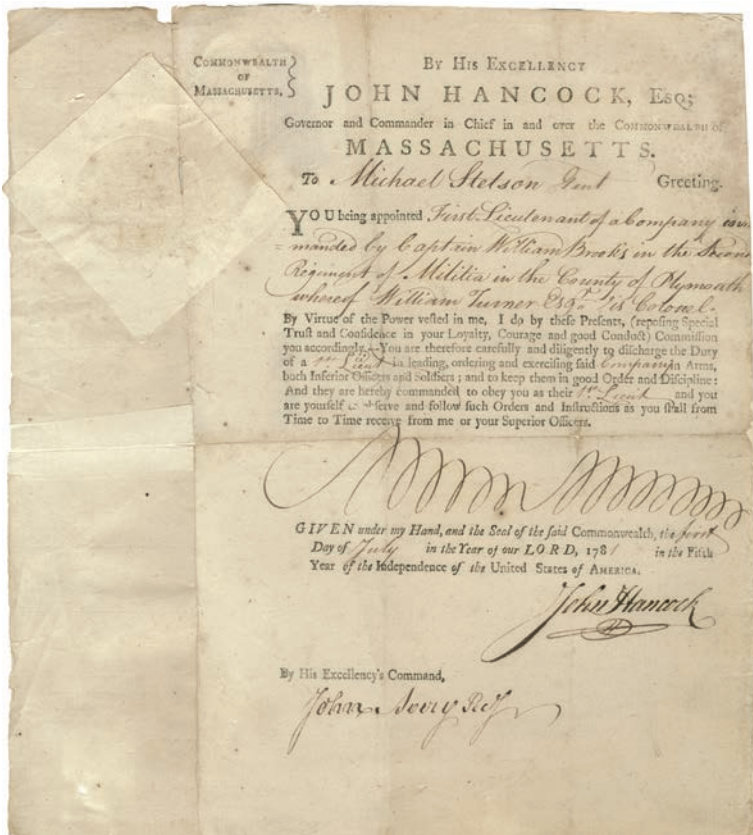 COMMONWEALTH
OF
MASSACHUSETTS.
BY HIS EXCELLENCY
JOHN HANCOCK, ESQ;
Governor and Commander in Chief in and over the COMMONWEALTH of
MASSACHUSETTS.
To Michael Stetson Gent Greeting.
YOU being appointed First Lieutenant of a Company com=
=manded by Captain William Brooks in the Second
Regiment of Militia in the County of Plymouth
whereof William Turner Esqr. is Colonel.
By Virtue of the Power vested in me, I do by these Presents, (reposing Special
Trust and Confidence in your Loyalty, Courage and good Conduct) Commission
you accordingly.—You are therefore carefully and diligently to discharge the Duty
of a 1st Lieut in leading, ordering and exercising said Company in Arms,
both Inferior Officers and Soldiers; and to keep them in good Order and Discipline:
And they are hereby commanded to obey you as their 1st Lieut and you
are yourself to observe and follow such Orders and Instructions as you shall from
Time to Time receive from me or your Superior Officers.
GIVEN under my Hand, and the Seal of the said Commonwealth, the first
Day of July in the Year of our LORD, 1781 in the Fifth
Year of the Independence of the United States of AMERICA.
John Hancock
By His Excellency's Command,
John Avery